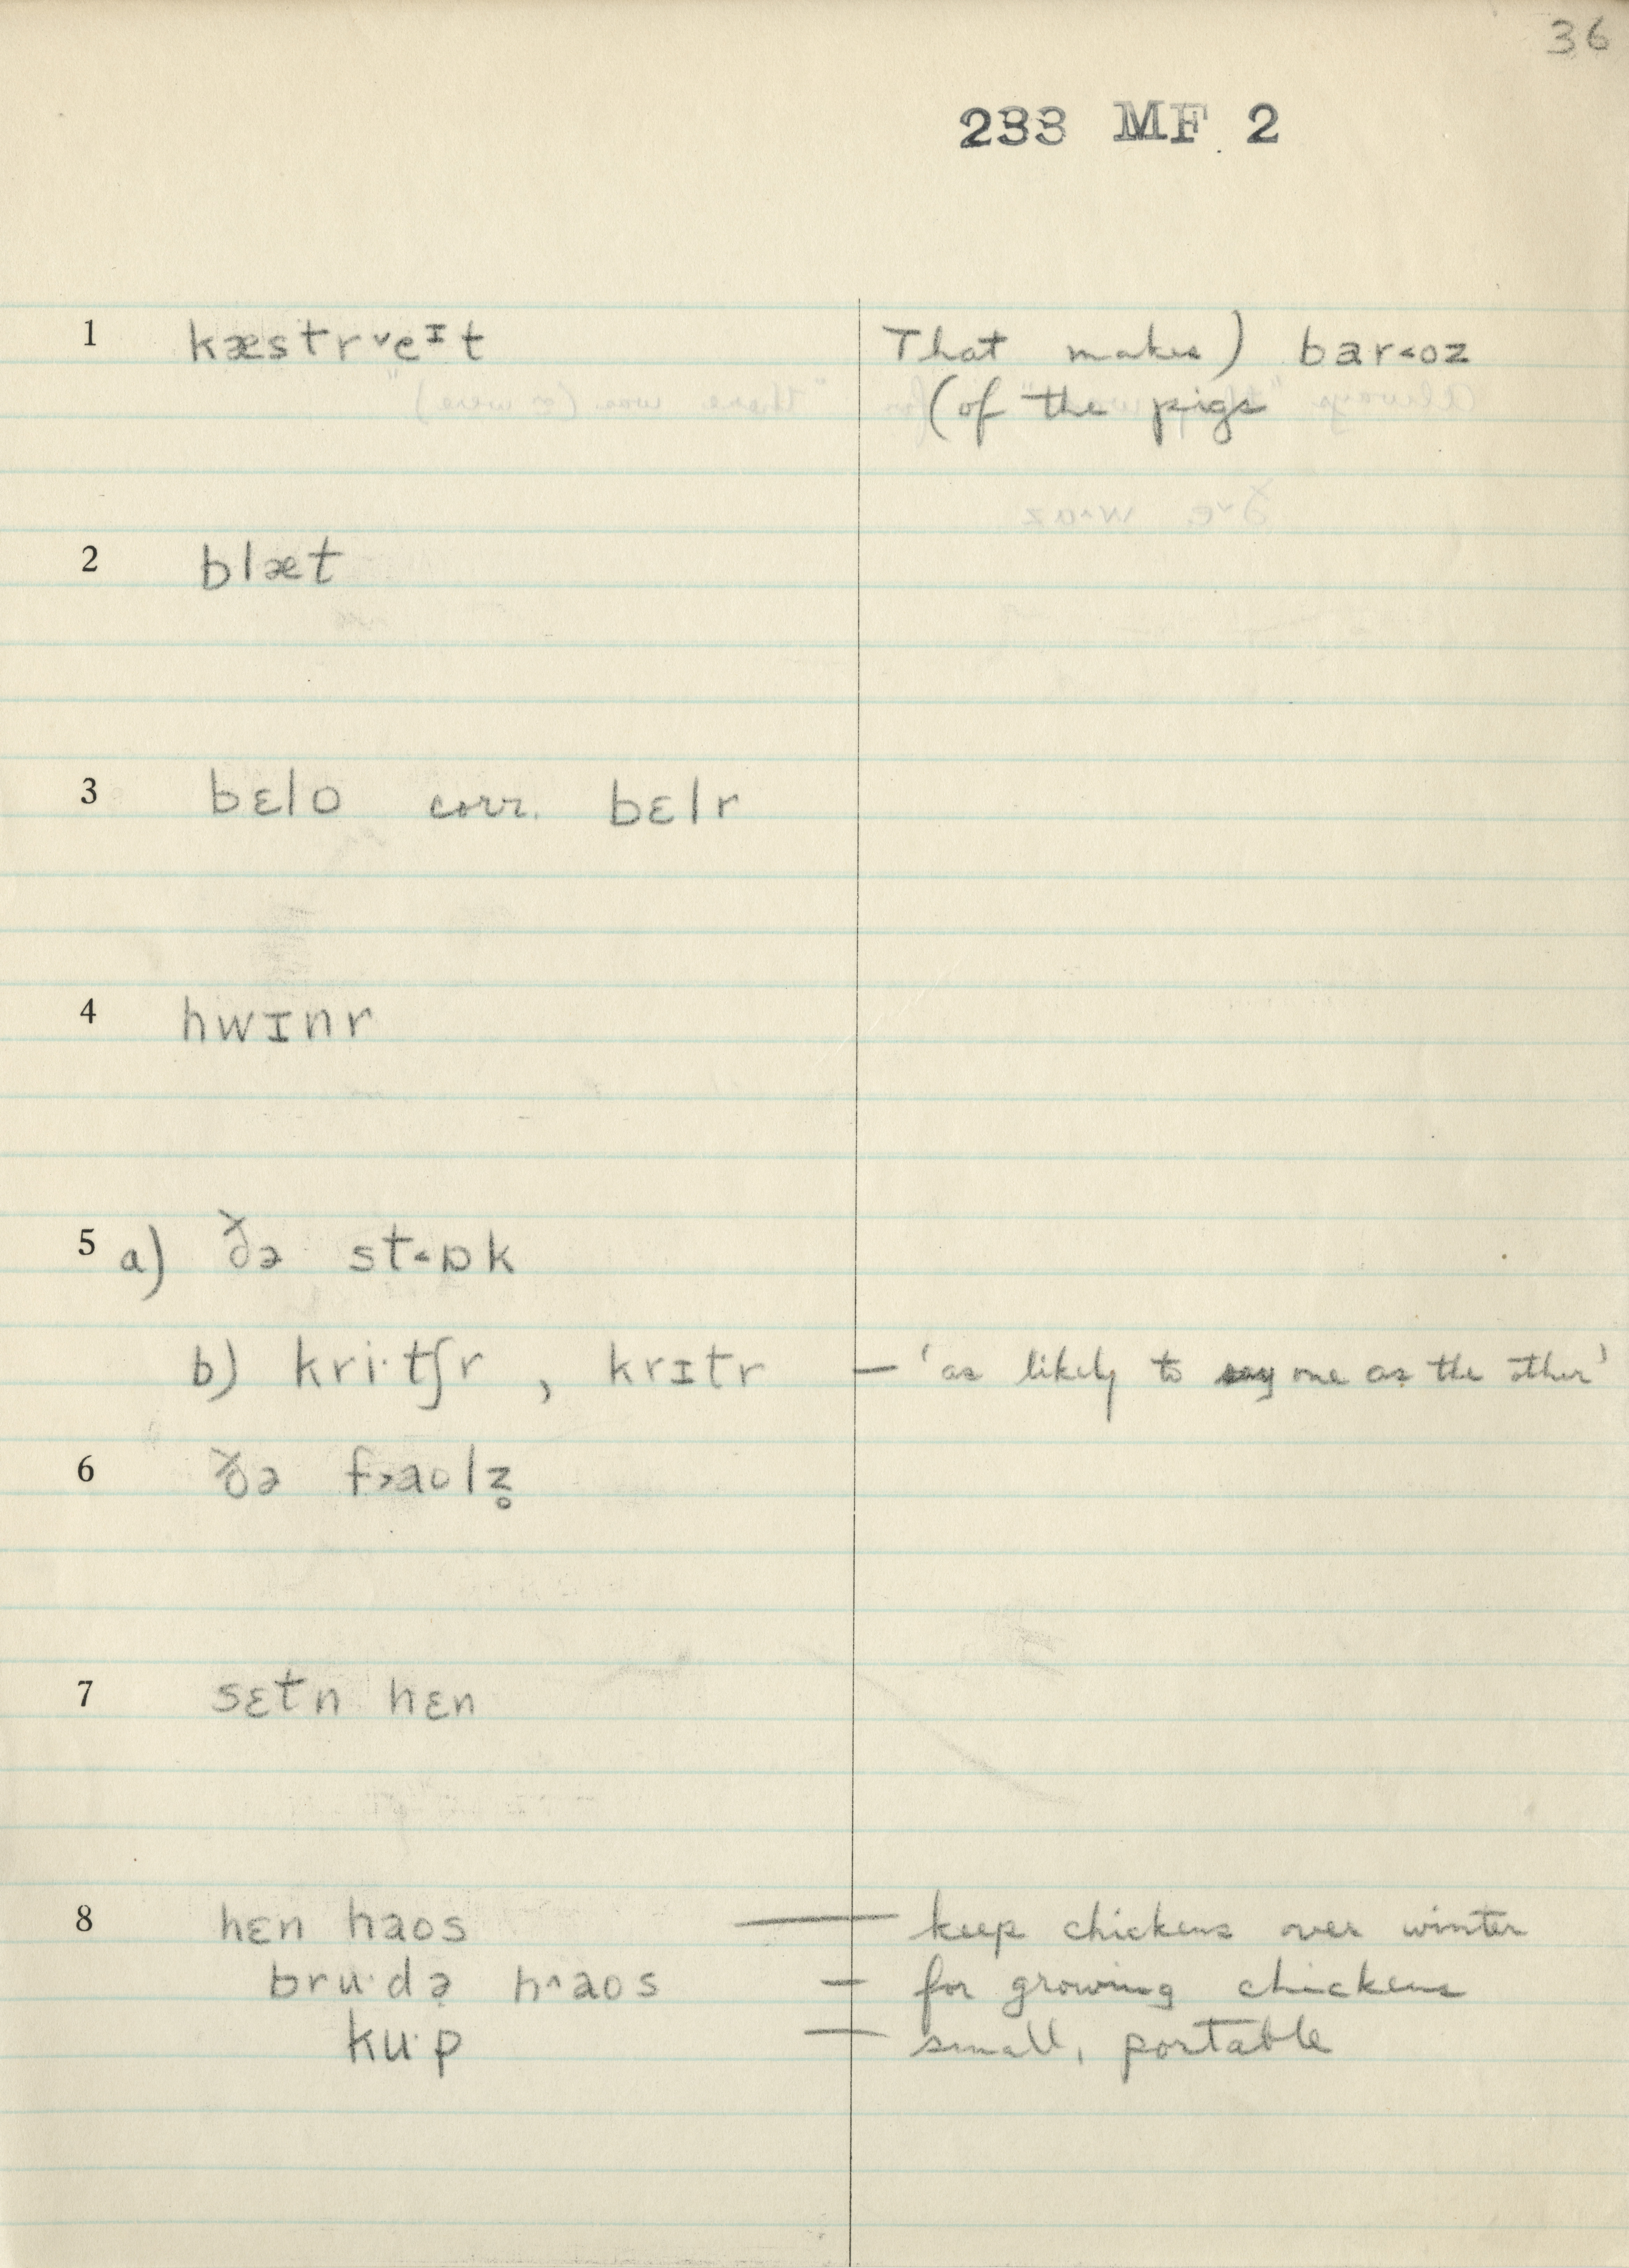 36
233 MF 2
1 kæstr˅eᴵt That makes) bar˂oz
(of the pigs
2 blæt
3 bɛlo corr. bɛlr
4 hwɪnr
5 a) ðə st˂ɒk
b) kri·tʃr , krɪtr — 'as likely to say one as the other'
6 ðə f˃aolz̥
7 sɛtn hɛn
8 hɛn haos — keep chickens over winter
bru·də̣ h^aos — for growing chickens
ku·p — small, portable